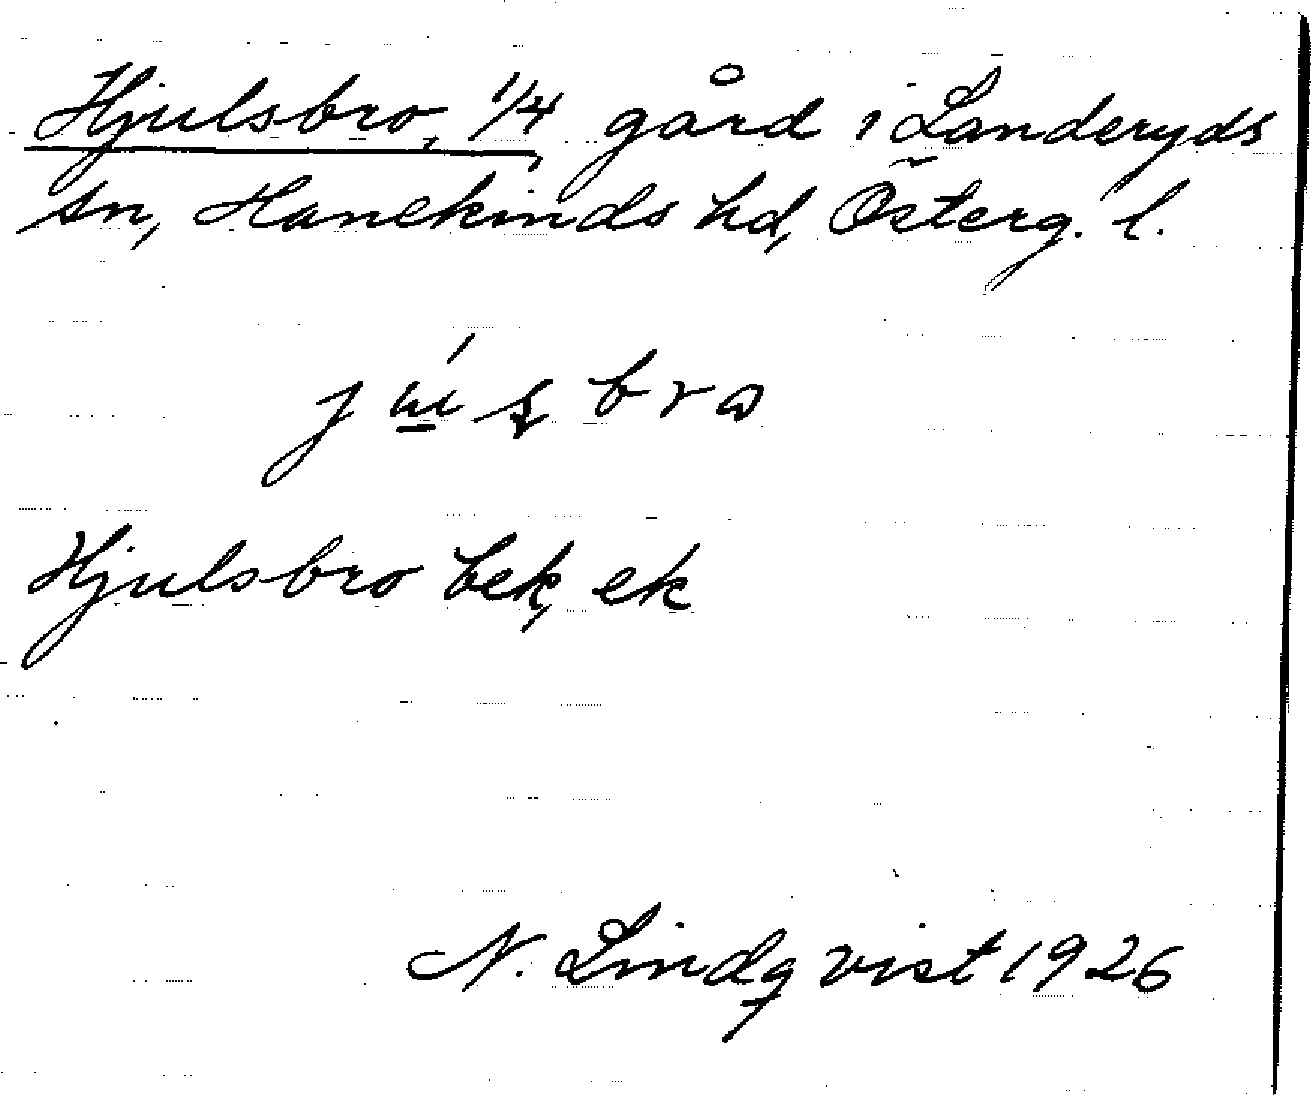 Hjulsbro, 1/4, gård i Landeryds
sn, Hanekinds hd, Österg. l.
Hjulsbro bek, ek
N. Lindqvist 1926